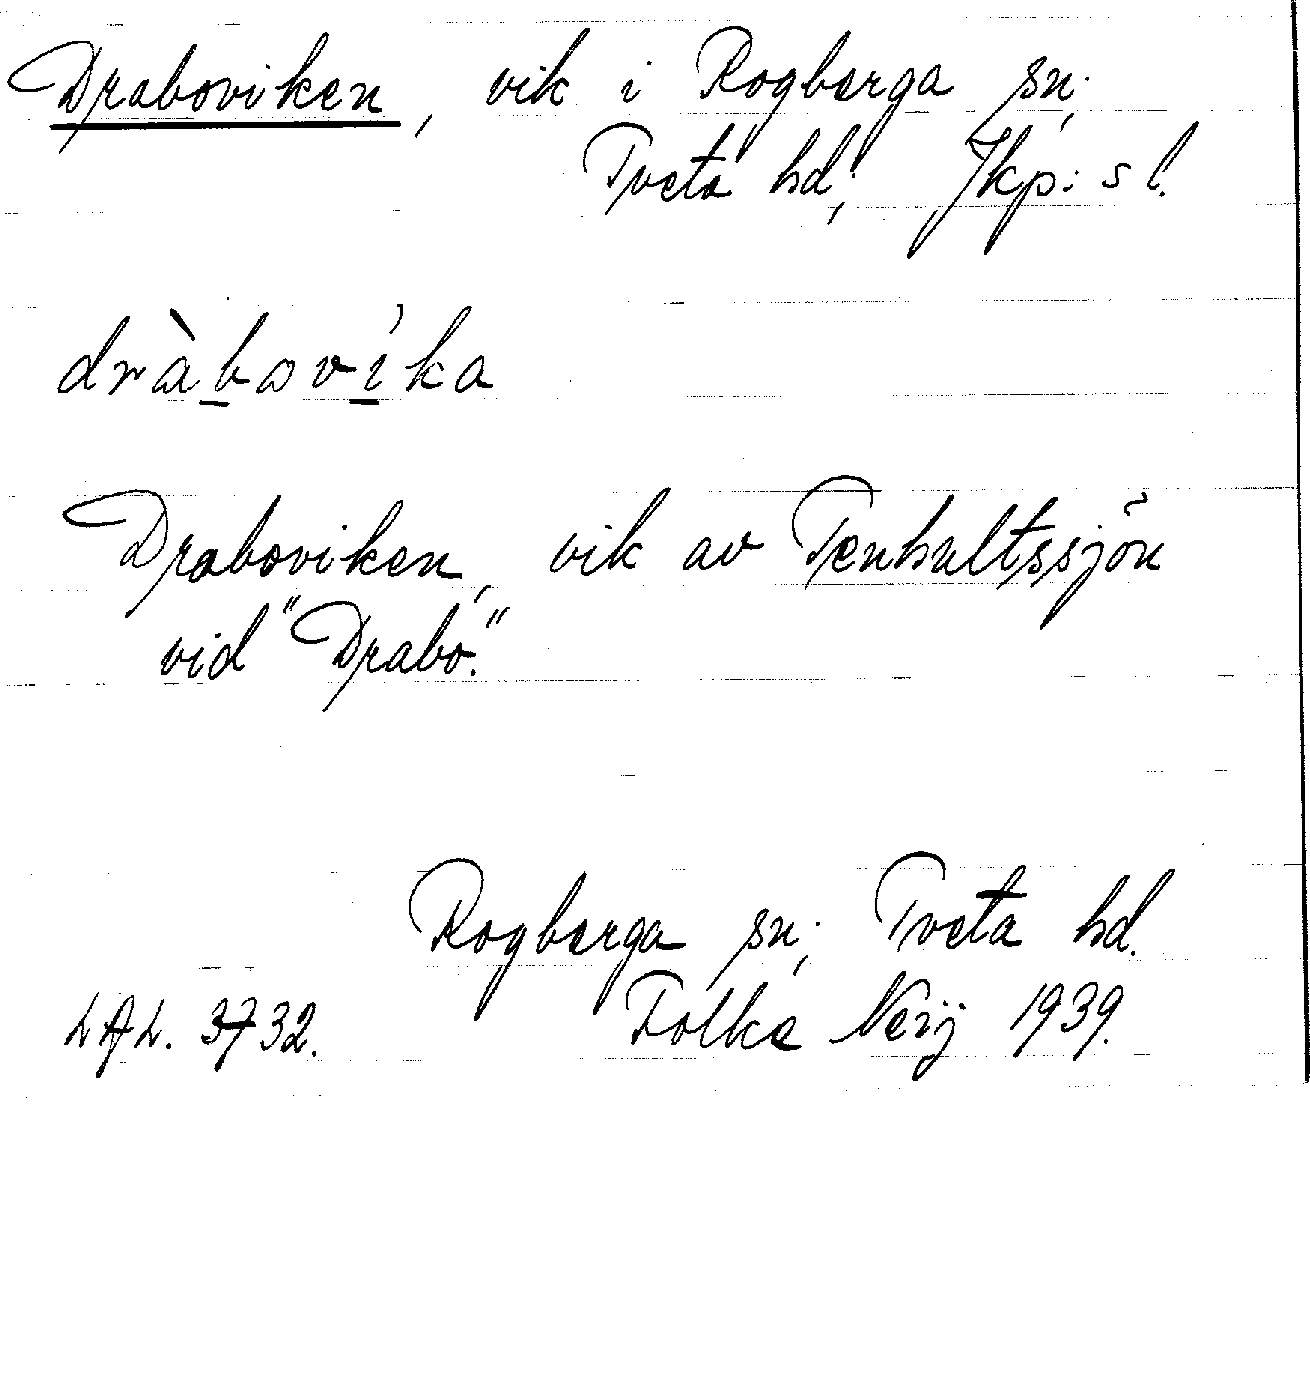 Draboviken, vik i Rogberga sn;
Tveta hd; Jkp:s l.
dràbovika
Draboviken, vik av Tenhultssjön
vid "Drabo."
Rogberga sn; Tveta hd.
LAL. 3732. Folke Neij 1939.